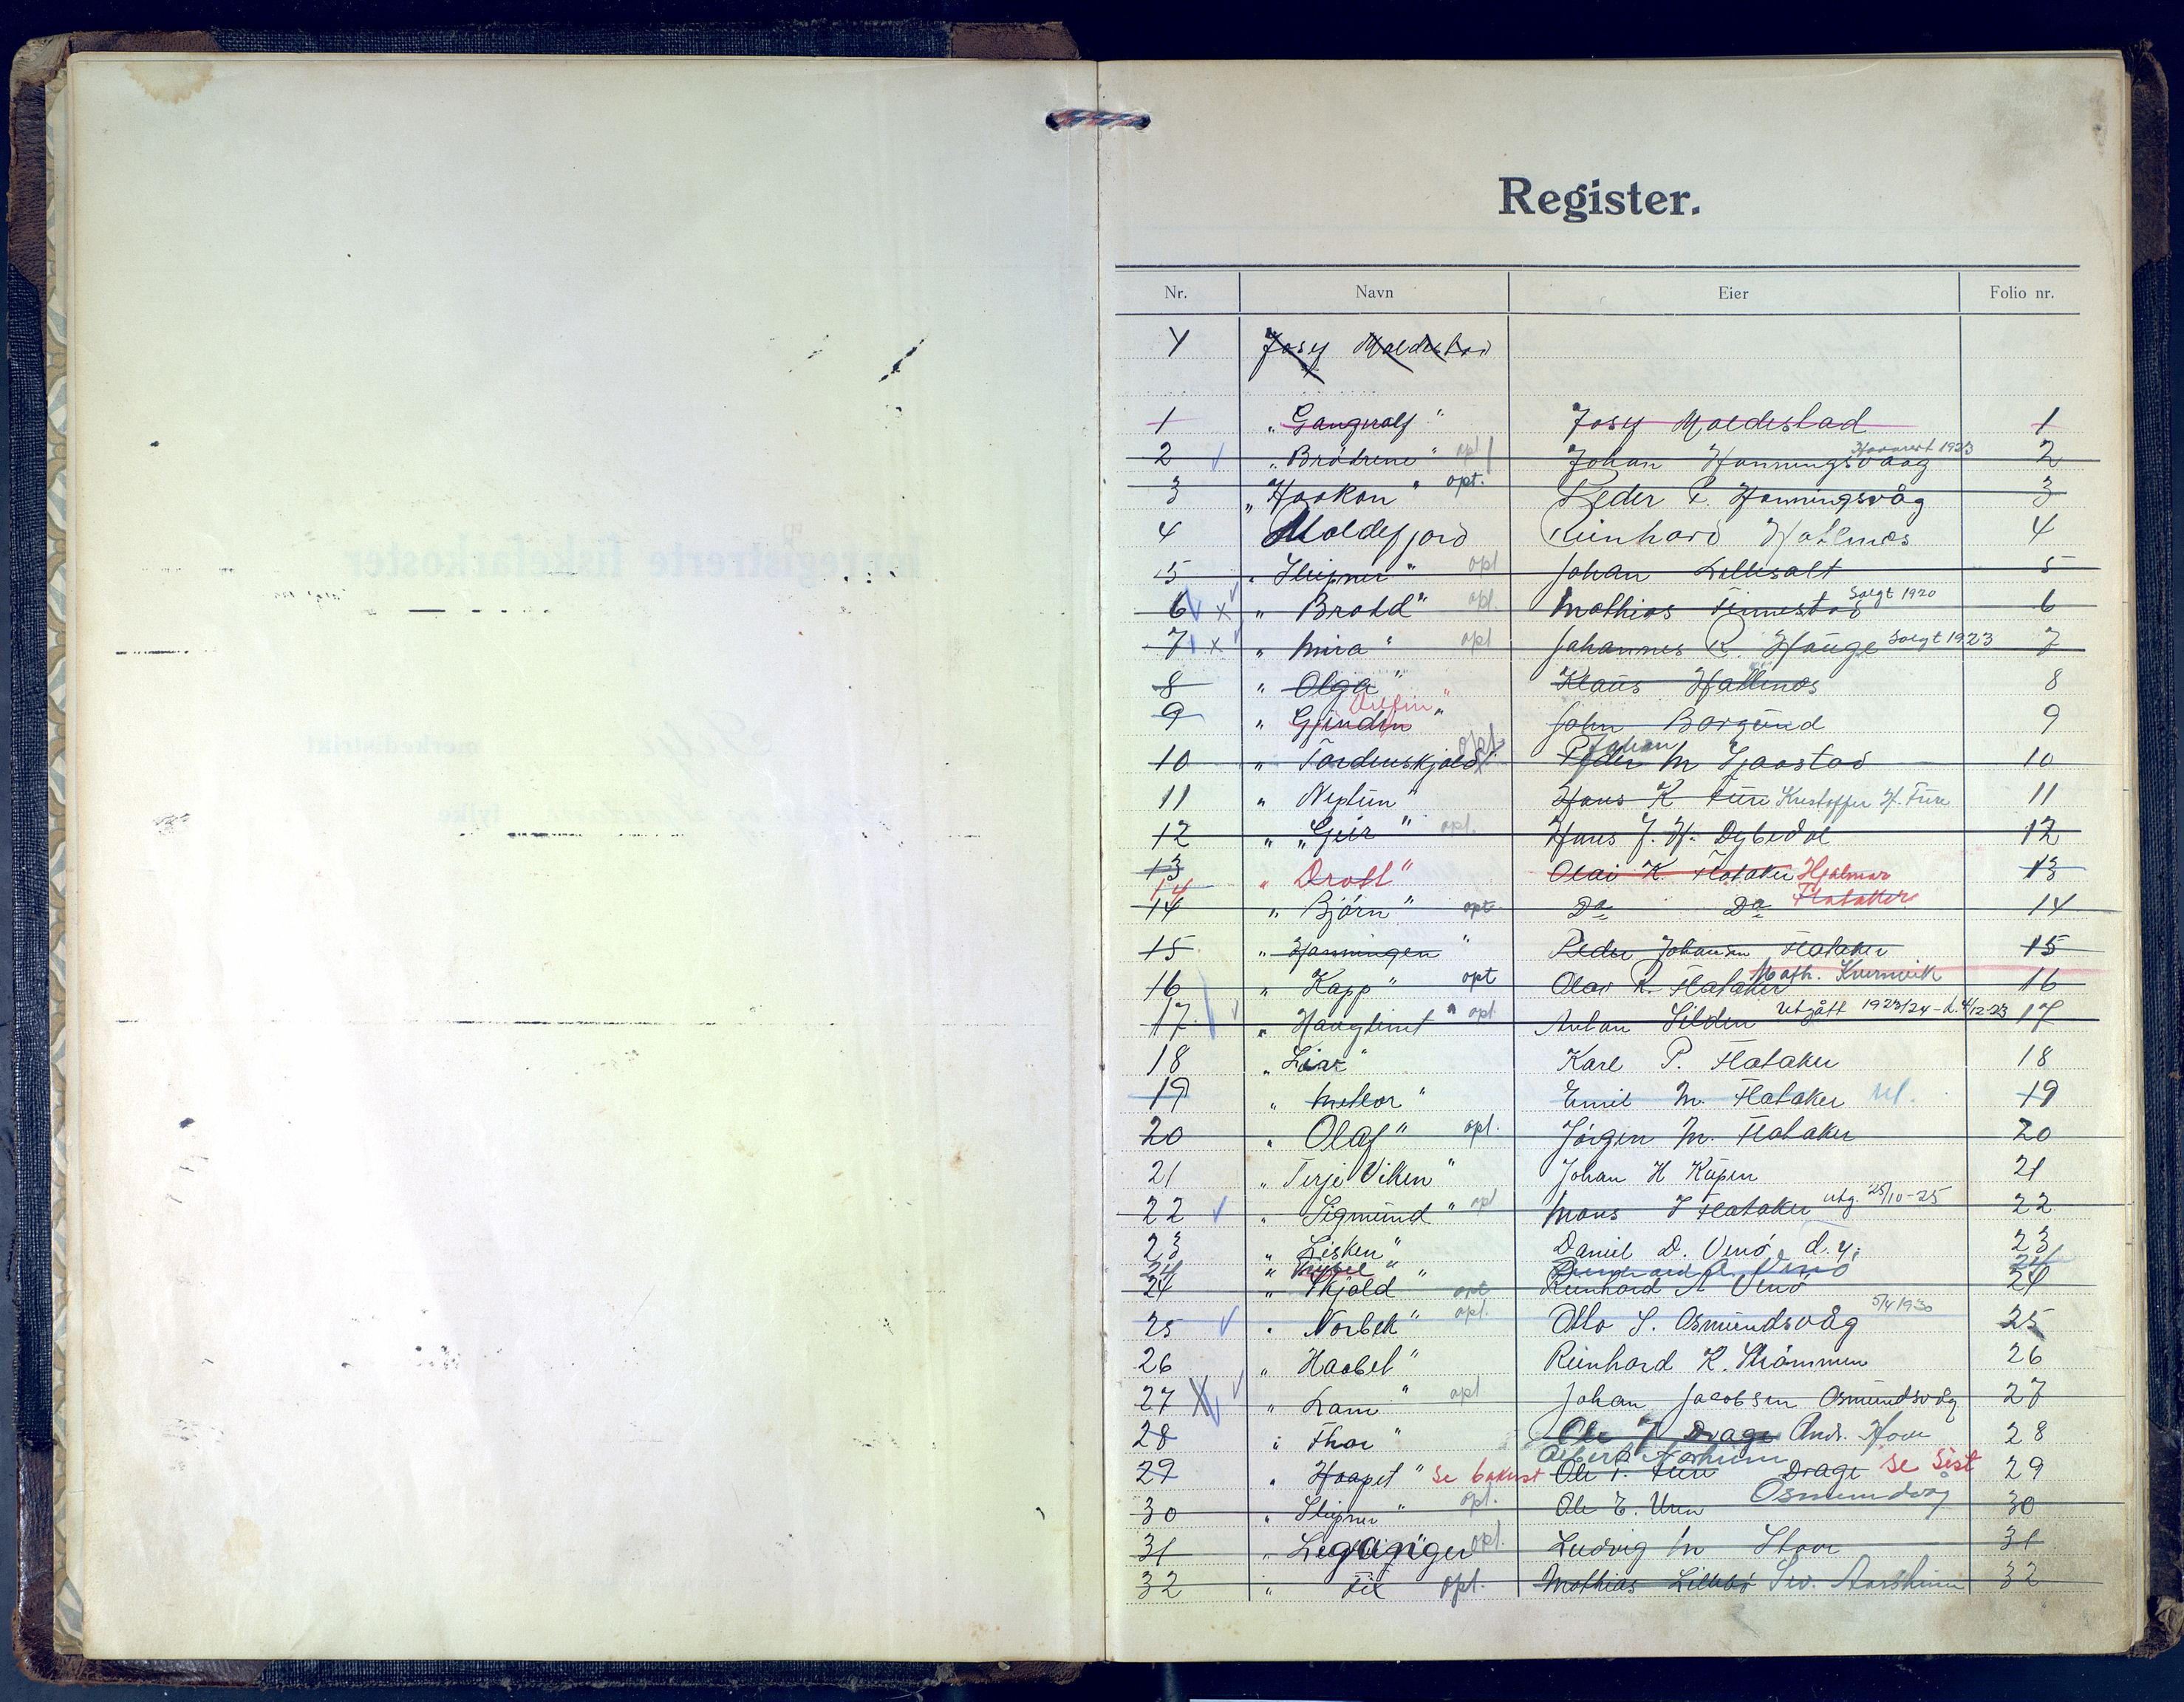 Register.
Nr. Navn Eier Folio nr.
Y Josef Moldestad
1 „Gangrolf" Josef Moldestad 1
2 „Brödrene" opt Johan Honningsvaag Havarert 1923 2
3 „Haakon" opt. Peder P. Honningsvåg 3
4 Moldefjord Reinhard Hatlenes 4
5 „Sleipner" opt Johan Lillesalt 5
6 x „Brodd" opt. Mathias Finnestad Solgt 1920 6
7 x „Mira" opt Johannes R. Hauge Solgt 1923 7
8 „Olga" Klaus Hatlenes 8
9 „Gjendin" Delfin" John Borgund 9
10 „Tordenskjold" opt Peder Johan M Sjaastad 10
11 „Neptun" Hans K Fure Kristoffer H. Fure 11
12 „Geir" opt. Hans J. H. Dybedal 12
13 „Drott" Olai K Flataker Hjalmar 13
14
14 „Björn" opt Do Do Flataker 14
15 „Hanningen" Peder Johansen Flataker 15
16 „Kapp" opt Olai K. Flataker Math. Kvernvik 16
17 „Haugtust" opt. Anton Silden Utgått 1923/24 - d. 4/12-23 17
18 „Liar" Karl P. Flataker 18
19 „Meteor" Emil M. Flataker Ut. 19
20 „Olaf" opt. Jörgen M. Flataker 20
21 „Terje Viken" Johan H Kupen 21
22 „Sigmund" opt Mons J Flataker utg. 25/10-25 22
23 „Lisken" Daniel D. Venö d.y. 23
24 Reinhard A. Venö 24
24 „Skjold" opt Reinhard A Venö 24
25 „Norbek" opt. Otto S. Osmundsvåg 5/4 1930 25
26 „Haabet" Reinhard K. Strömmen 26
27 X „Lam" opt Johan Jacobsen Osmundsvåg 27
28 „Thor" Ole J Drage And. Hove 28
29 „Haapet" Se bakerst Ole P. Fure Albert Aarheim Drage Se Sist 29
30 „Sleipner" opt. Ole E. Uren Osmundvåg 30
31 „Leganger" opt. Ludvig M Stave 31
32 „Fix opt. Mathias Lillebö Sev. Aarsheim 32